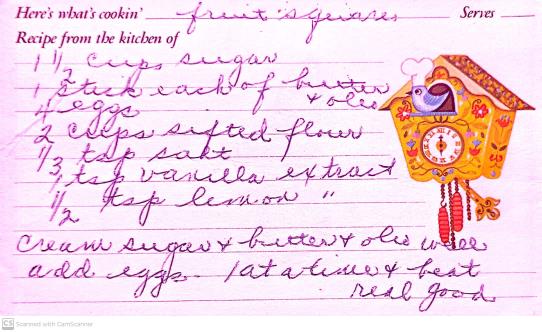 Here's what's cookin' fruit squares Serves
Recipe from the kitchen of
1 1/2 cups sugar
1 stick each of butter
& oleo
4 eggs
2 cups sifted flour
1/3 tsp salt
1 tsp vanilla extract
1/2 tsp lemon "
Cream sugar & butter & oleo well
add eggs - 1 at a time & beat
real good
CS Scanned with CamScanner